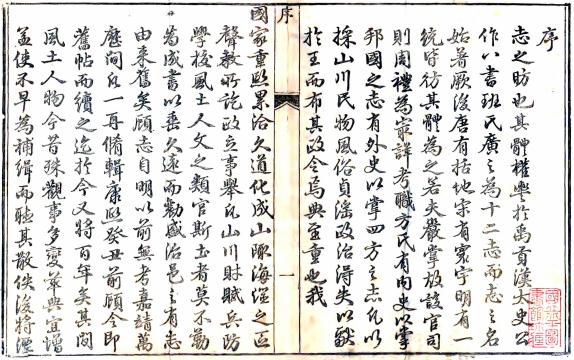 序
志之昉也其體權輿於禹貢漢太史公
作八書班氏廣之為十二志而志之名
始著厥後唐有括地宋有寰宇明有一
統皆仿其體為之若夫嚴掌故設官司
則周禮為最詳考職方氏有內史以掌
邦國之志有外史以掌四方之志凡以
採山川民物風俗貞淫政治得失以獻
於王而布其政令焉典至重也我
序
一
國家重熙累洽久道化成山陬海澨之區
聲教所訖政立事舉凡山川財賦兵防
學校風土人文之類官斯土者莫不勒
為成書以垂久遠而勸盛治邑之有志
由來舊矣顧志自明以前無考嘉靖萬
歷間凡一再脩輯康熙癸丑前顧令即
舊帖而續之迄於今又將百年矣其間
風土人物今昔殊觀事多變革典宜增
益使不早為補緝而聽其散佚後將湮